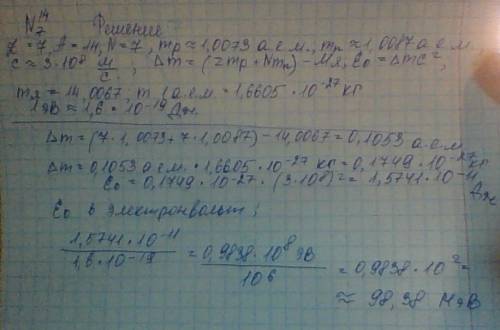 ₇N¹⁴ Решение
Z = 7, A = 14, N = 7, mp ≈ 1,0073 а.е.м., mn ≈ 1,0087 а.е.м.
c ≈ 3·10⁸ м/с, Δm = (Zmp + Nmn) - Mя, E₀ = Δmc²,
mя = 14,0067, m 1 а.е.м. = 1,6605·10⁻²⁷ кг
1 эВ ≈ 1,6·10⁻¹⁹ Дж.
Δm = (7·1,0073 + 7·1,0087) - 14,0067 = 0,1053 а.е.м
Δm = 0,1053 а.е.м. · 1,6605·10⁻²⁷ кг = 0,1749·10⁻²⁷ кг
E₀ = 0,1749·10⁻²⁷ · (3·10⁸)² = 1,5741·10⁻¹¹ Дж
E₀ в электронвольт;
1,5741·10⁻¹¹ / 1,6·10⁻¹⁹ = 0,9838·10⁸ эВ / 10⁶ = 0,9838·10² =
≈ 98,38 МэВ